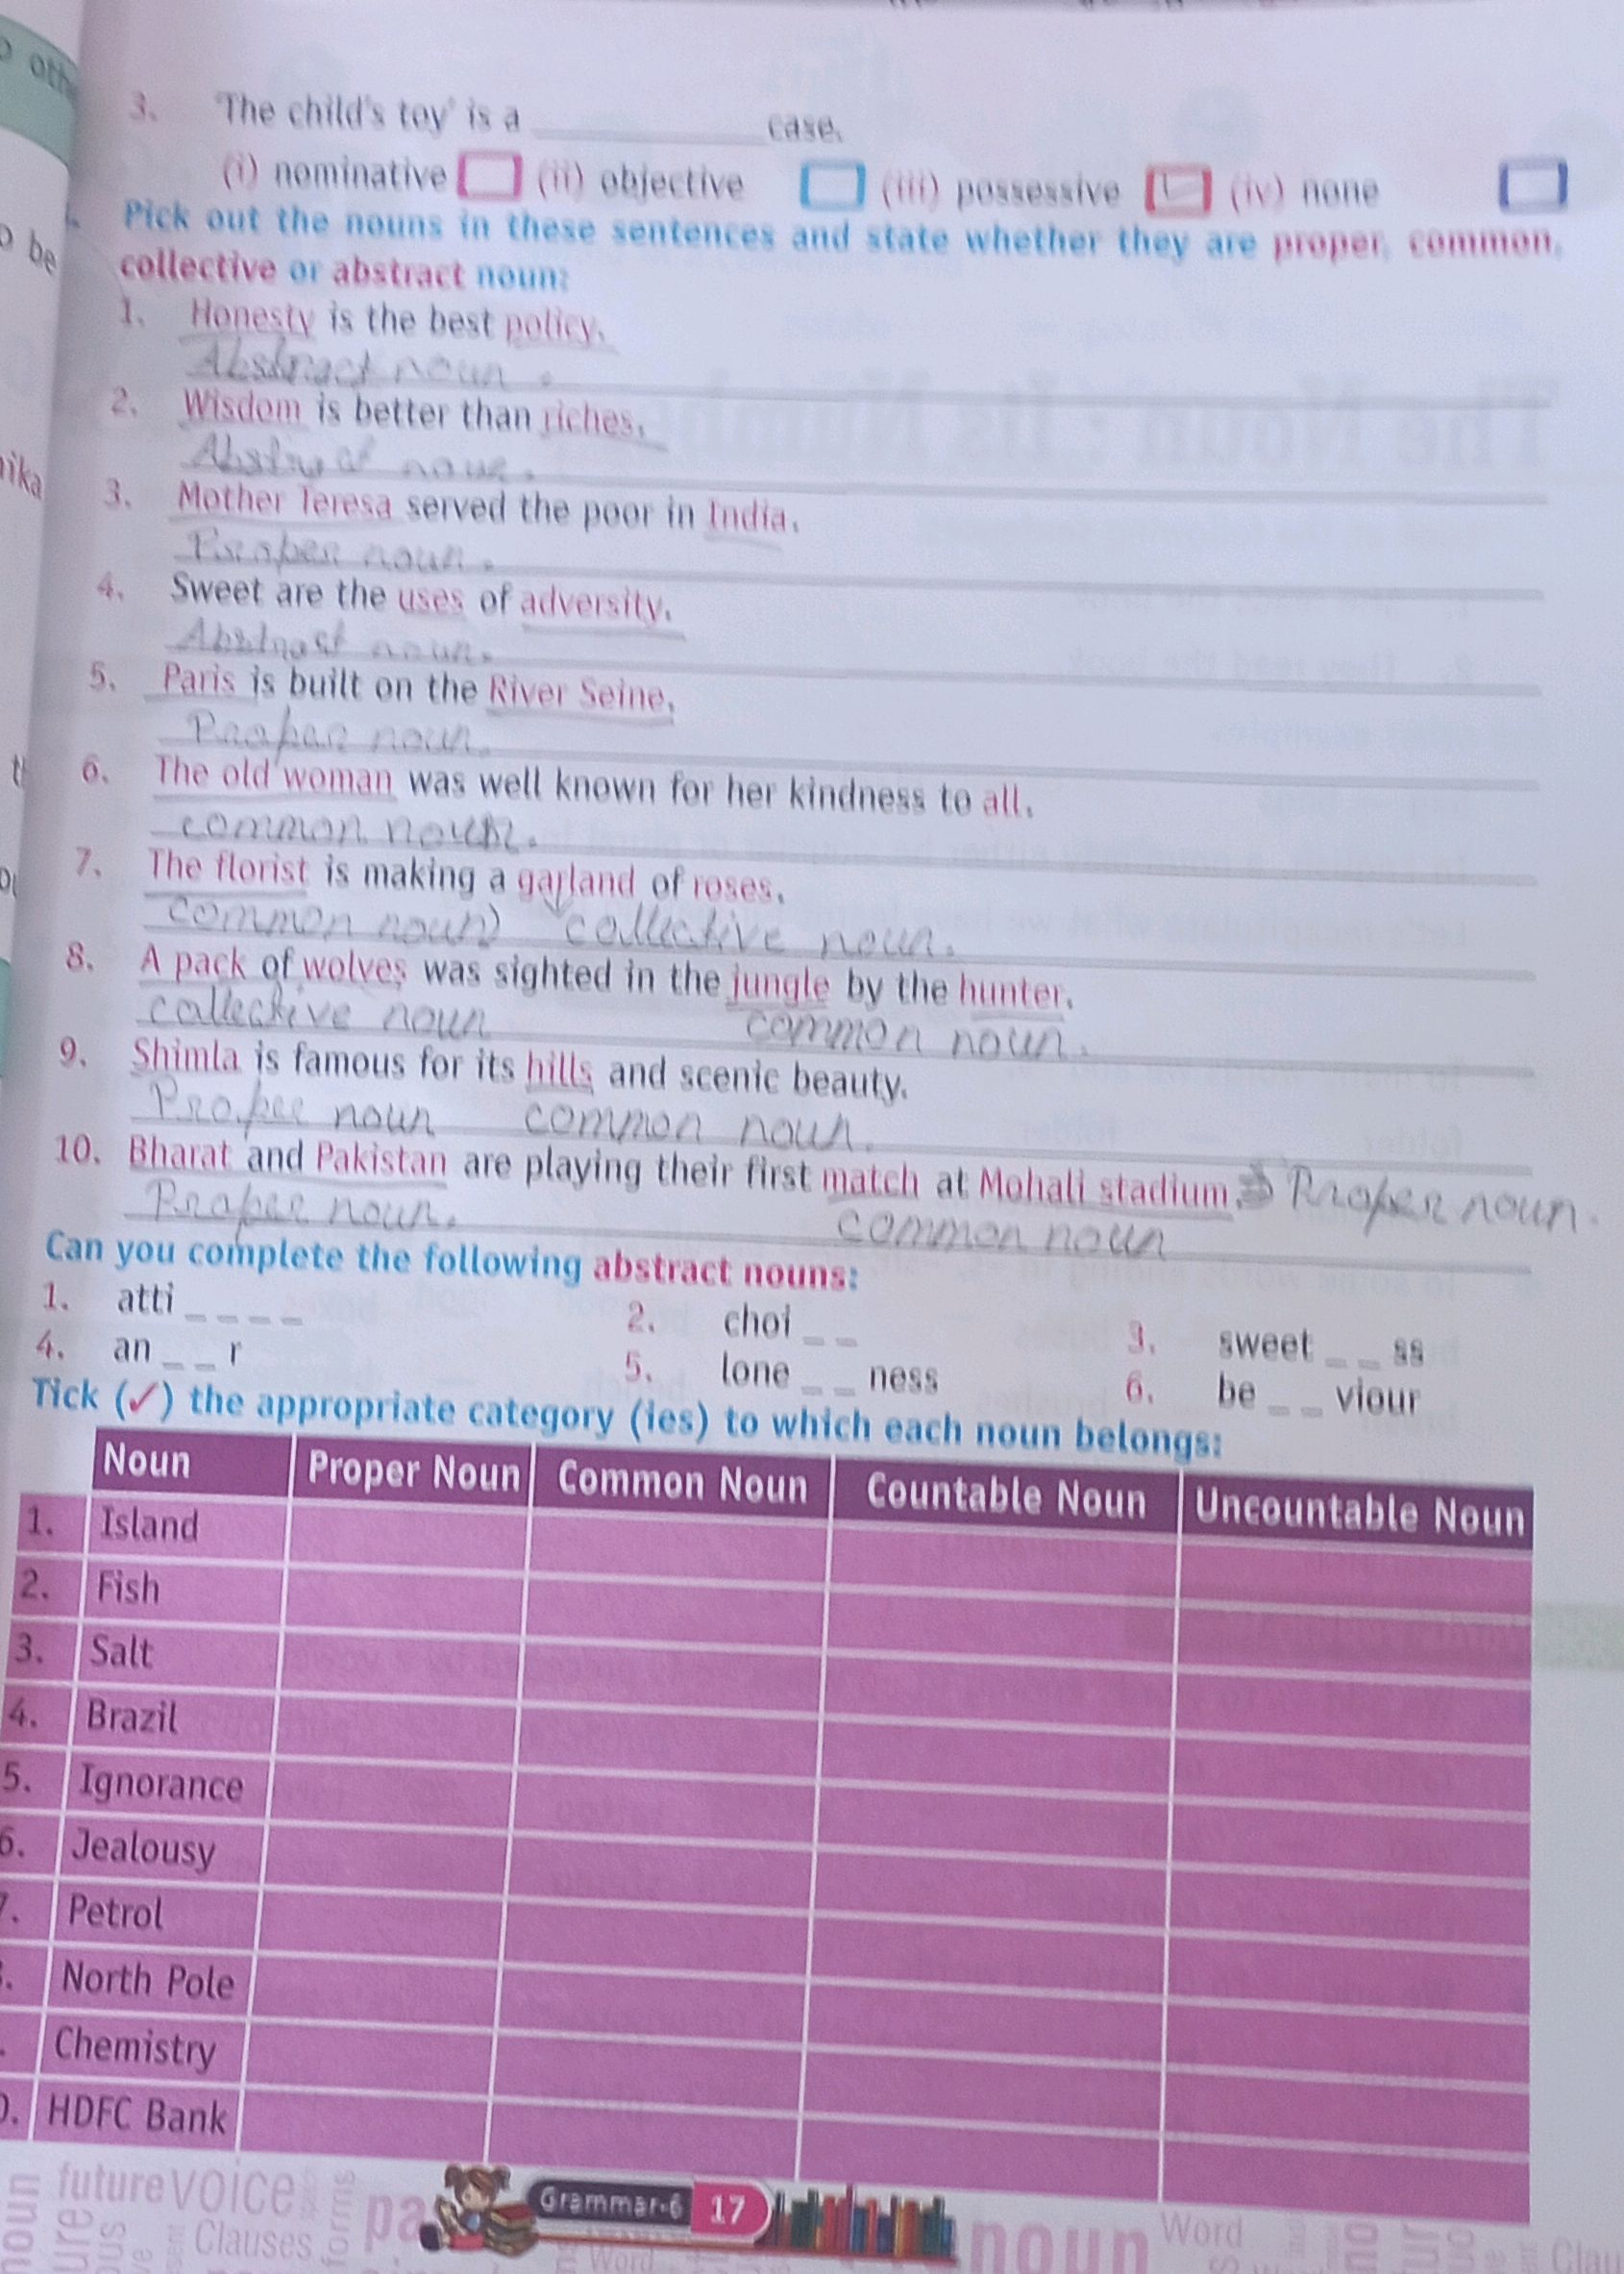 3. 'The child's toy' is a ____________ case.
(i) nominative (ii) objective (iii) possessive (iv) none
Pick out the nouns in these sentences and state whether they are proper, common,
collective or abstract noun:
1. Honesty is the best policy.
Abstract noun.
2. Wisdom is better than riches.
Abstract noun.
3. Mother Teresa served the poor in India.
Proper noun.
4. Sweet are the uses of adversity.
Abstract noun.
5. Paris is built on the River Seine.
Proper noun.
6. The old woman was well known for her kindness to all.
common noun.
7. The florist is making a garland of roses.
common noun collective noun.
8. A pack of wolves was sighted in the jungle by the hunter.
collective noun common noun.
9. Shimla is famous for its hills and scenic beauty.
Proper noun common noun.
10. Bharat and Pakistan are playing their first match at Mohali stadium. Proper noun.
Proper noun. common noun
Can you complete the following abstract nouns:
1. atti _ _ _ _ 2. choi _ _ 3. sweet _ _ ss
4. an _ _ r 5. lone _ _ ness 6. be _ _ viour
Tick (✓) the appropriate category (ies) to which each noun belongs:
Noun Proper Noun Common Noun Countable Noun Uncountable Noun
1. Island
2. Fish
3. Salt
4. Brazil
5. Ignorance
6. Jealousy
7. Petrol
North Pole
Chemistry
HDFC Bank
future voice
Clauses
Grammar-6 17
noun
Word